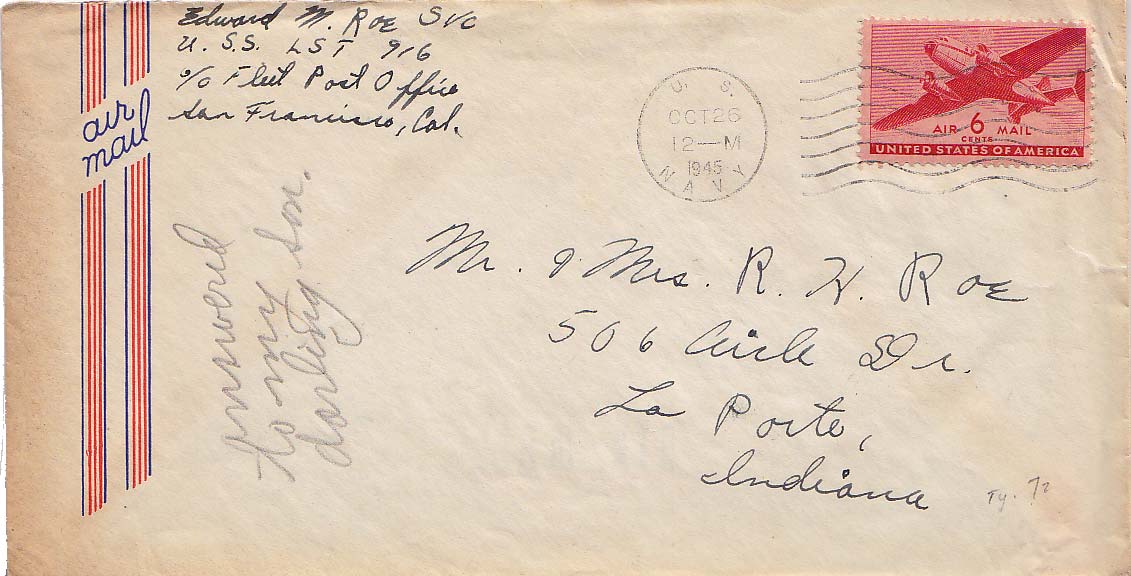 Edward M. Roe SV/c
U.S.S. LST 916
c/o Fleet Post Office
San Francisco, Cal.
air
mail
U. S.
OCT 26
12—M
1945
NAVY
AIR 6 MAIL
CENTS
UNITED STATES OF AMERICA
answered
to my
darling son.
Mr. & Mrs. R. H. Roe
506 Circle Dr.
La Porte,
Indiana